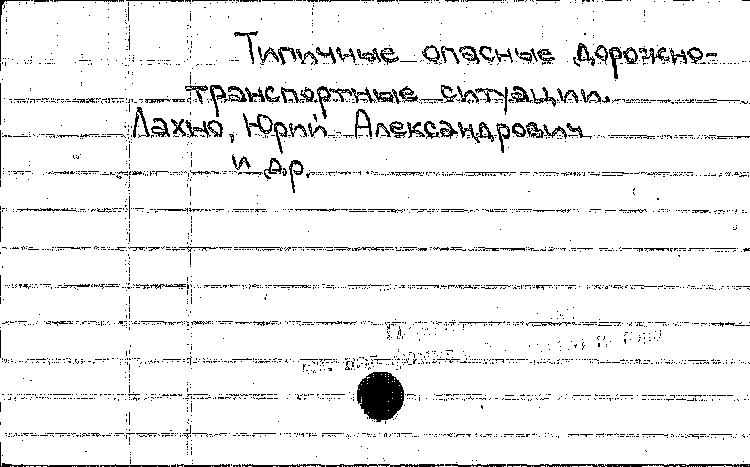 Типичные опасные дорожно-
транспортные ситуации.
Лахно, Юрий Александрович
и др.